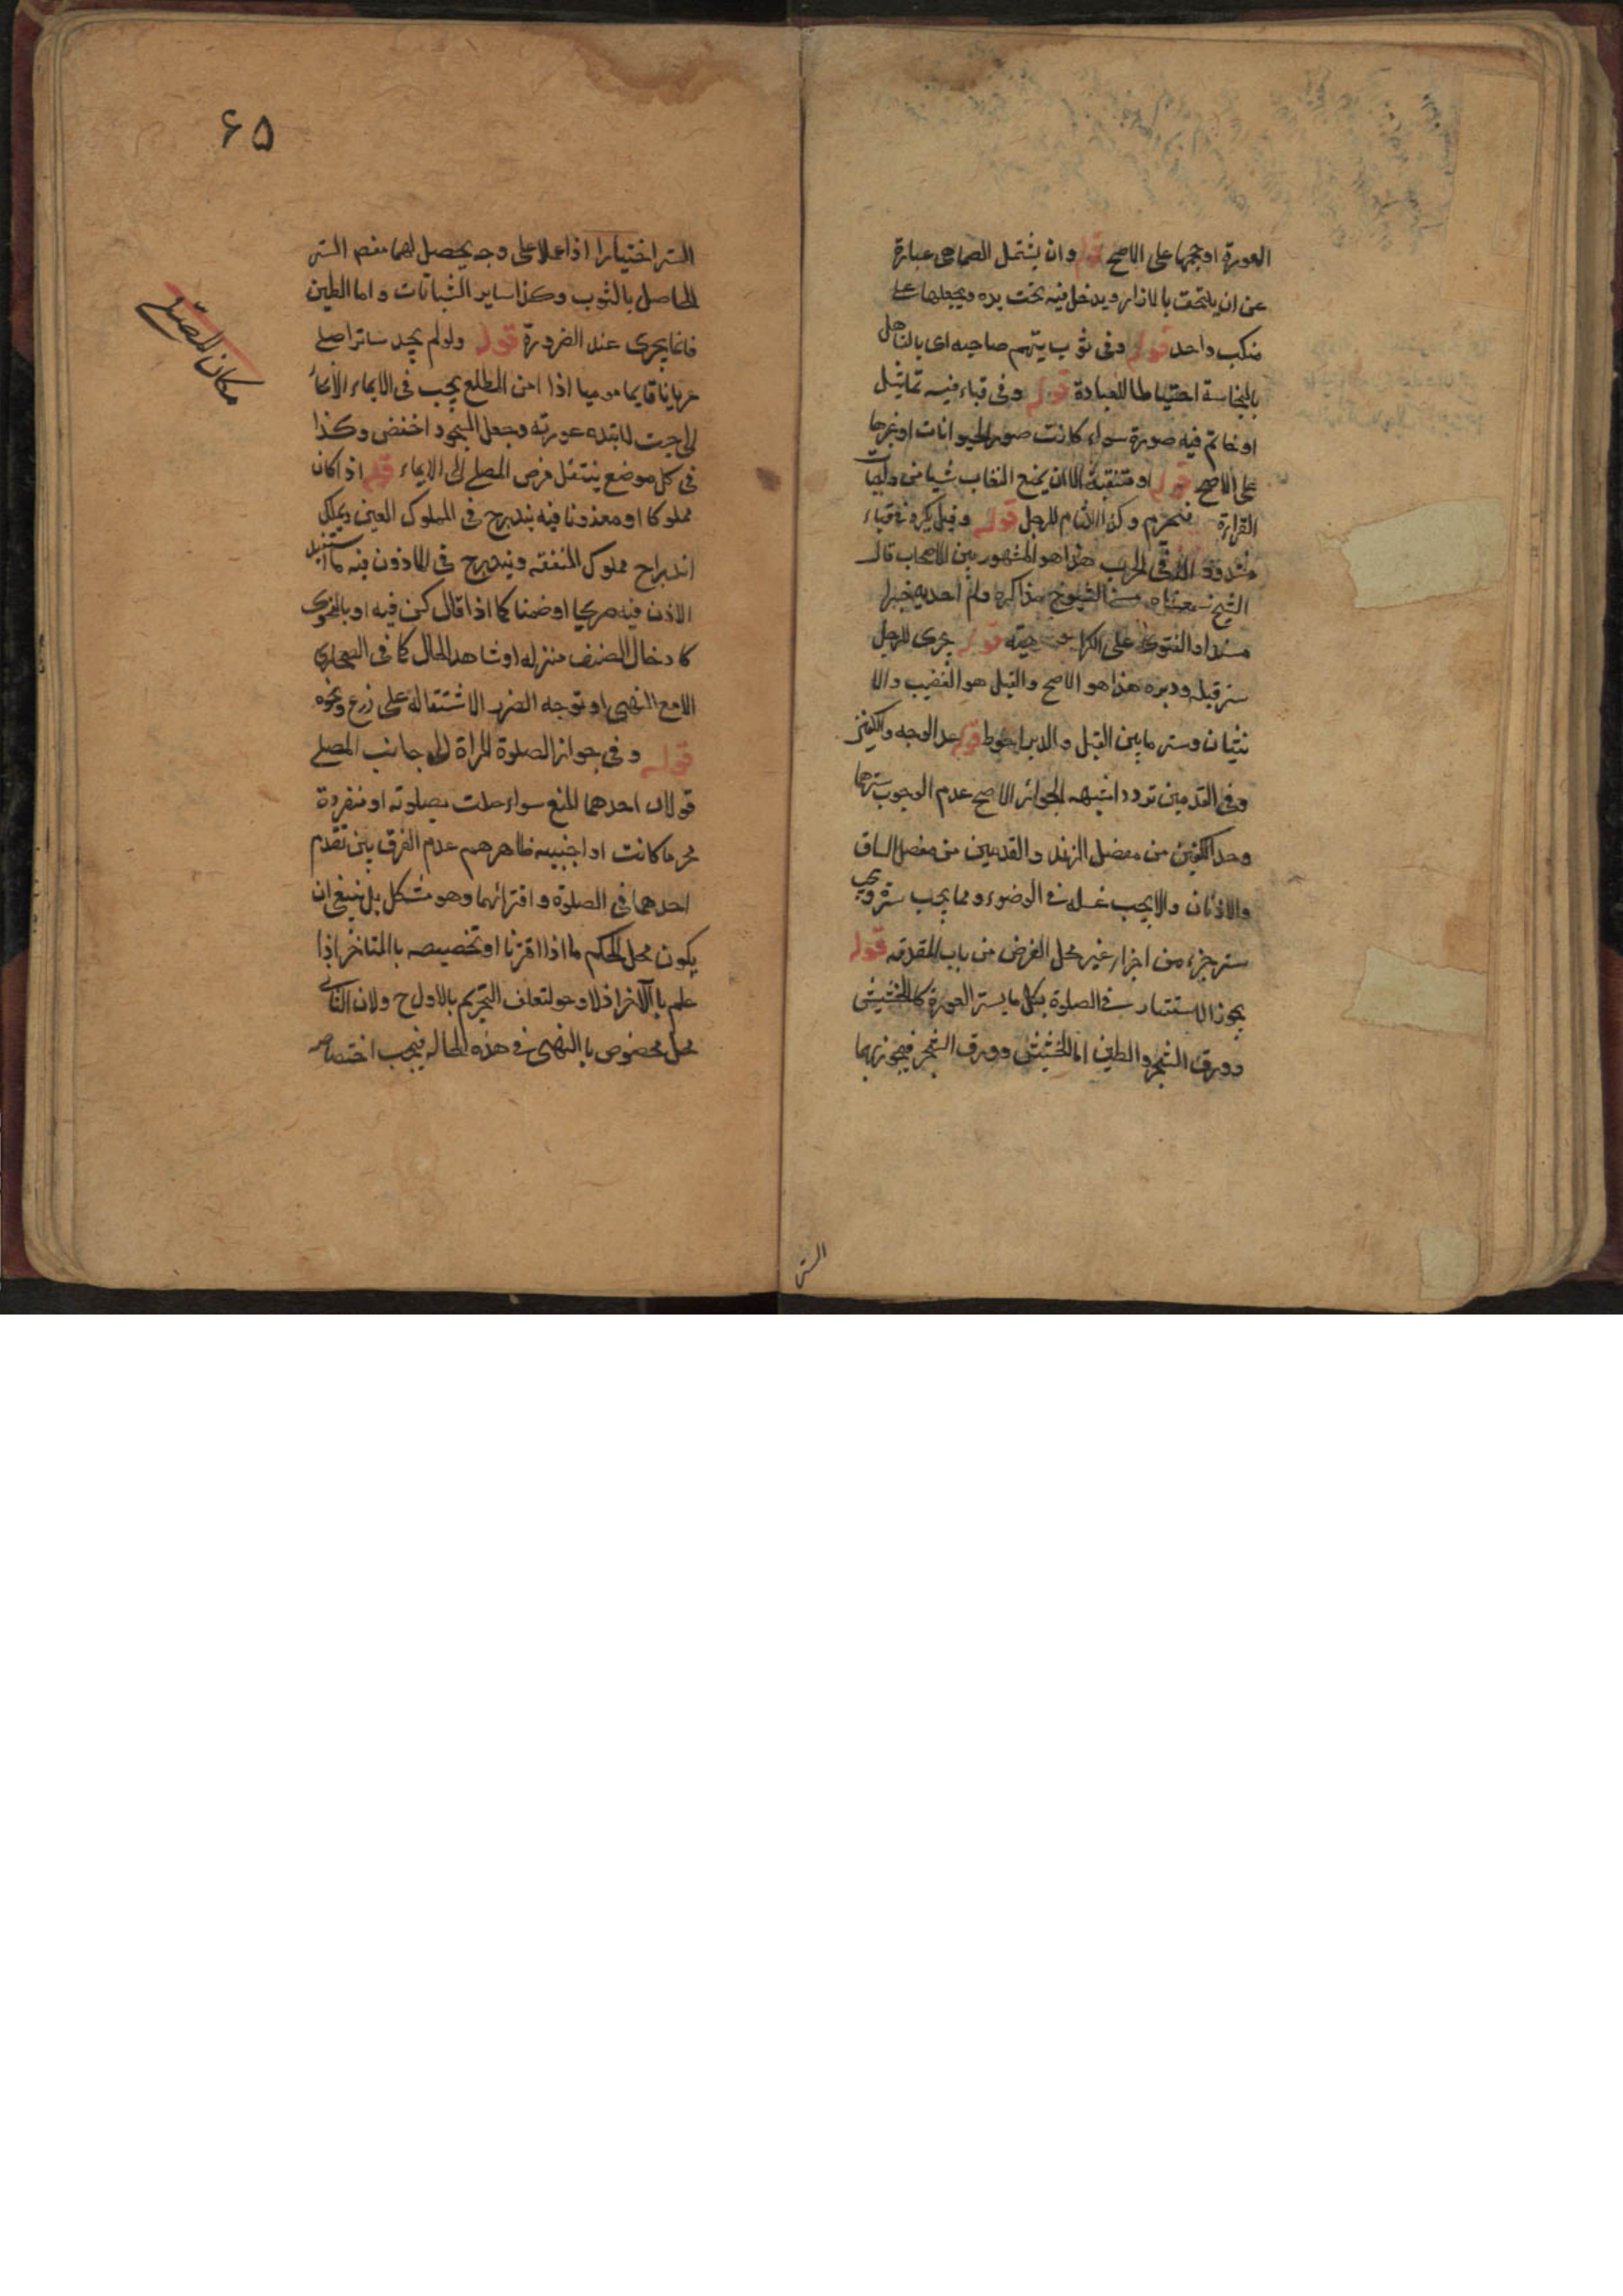 العورة او حجمها على الاصح قوله وان يشتمل الصما هى عبارة
عن ان يلتحف بالازار ويدخل فيه تحت يده ويجعلها على
منكب واحد قوله وفى ثوب يتهم صاحبه اى بالتاهل
بالنجاسة احتياطا للعبادة قوله وفى قباء فيه تماثيل
او خاتم فيه صورة سواء كانت صور الحيوانات او غيرها
على الاصح قوله او متنقبة الا ان يمنع النقاب شيا من واجبات
القراءة فيحرم وكذا اللثام للرجل قوله وقيل يكره فى قباء
مشدود الا فى الحرب هذا هو المشهور بين الاصحاب قال
الشيخ سمعناه من الشيوخ مذاكرة ولم اجد به خبرا
مسندا والفتوى على الكراهية قوله يجزى للرجل
ستر قبله ودبره هذا هو الاصح والقبل هو القضيب والا
نثيان وستر ما بين القبل والدبر احوط قوله عدا الوجه والكفين
وفى القدمين تردد اشبهه الجواز الاصح عدم الوجوب سترهما
وحد الكفين من مفصل الزند والقدمين من مفصل الساق
والاذنان والا يجب غسله فى الوضوء ومما يجب ستره ويجب
ستر جزء من اجزاء غير محل الفرض من باب المقدمه قوله
يجوز الاستتار فى الصلوة بكل ما يستر العورة كالحشيش
وورق الشجر والطين اما الحشيش وورق الشجر فيجوز بهما
الستر
۶۵
الستر اختيارا اذا عملا على وجه يحصل لهما مفهم الستر
الحاصل بالثوب وكذا ساير النباتات واما الطين
فانما يجزى عند الضرورة قوله ولو لم يجد ساترا صلى
عريانا قايما موميا اذا امن المطلع يجب فى الايماء الانحناء
الى حيث لا تبد عورته ويجعل السجود اخفض وكذا
فى كل موضع ينتقل فرض المصلى الى الايماء قوله اذا كان
مملوكا او ماذونا فيه يندرج فى المملوك العين ويملك
اندراج مملوك المنفعة ويندرج فى الماذون فيه ما استفيد
الاذن فيه صريحا او ضمنا كما اذا قال كن فيه او بالفحوى
كادخال الضيف منزله او شاهد الحال كما فى الصحارى
الا مع النهى او توجه الضرر الاشتماله على زرع ونحوه
قوله وفى جواز الصلوة المراة الى جانب المصلى
قولان احدهما المنع سواء صلت بصلوته او منفردة
محرما كانت او اجنبيه ظاهرهم عدم الفرق بين تقدم
احدهما فى الصلوة واقترانهما وهو مشكل بل ينبغى ان
يكون محل الحكم ما اذا اقترنا او تخصيصه بالمتاخر اذا
علم بالآخر اذ لا وجه لتعلق التحريم بالاول ح ولان الثانى
محل مخصوص بالنهى فى هذه الحاله فيجب اختصاصه
مكان المصلى